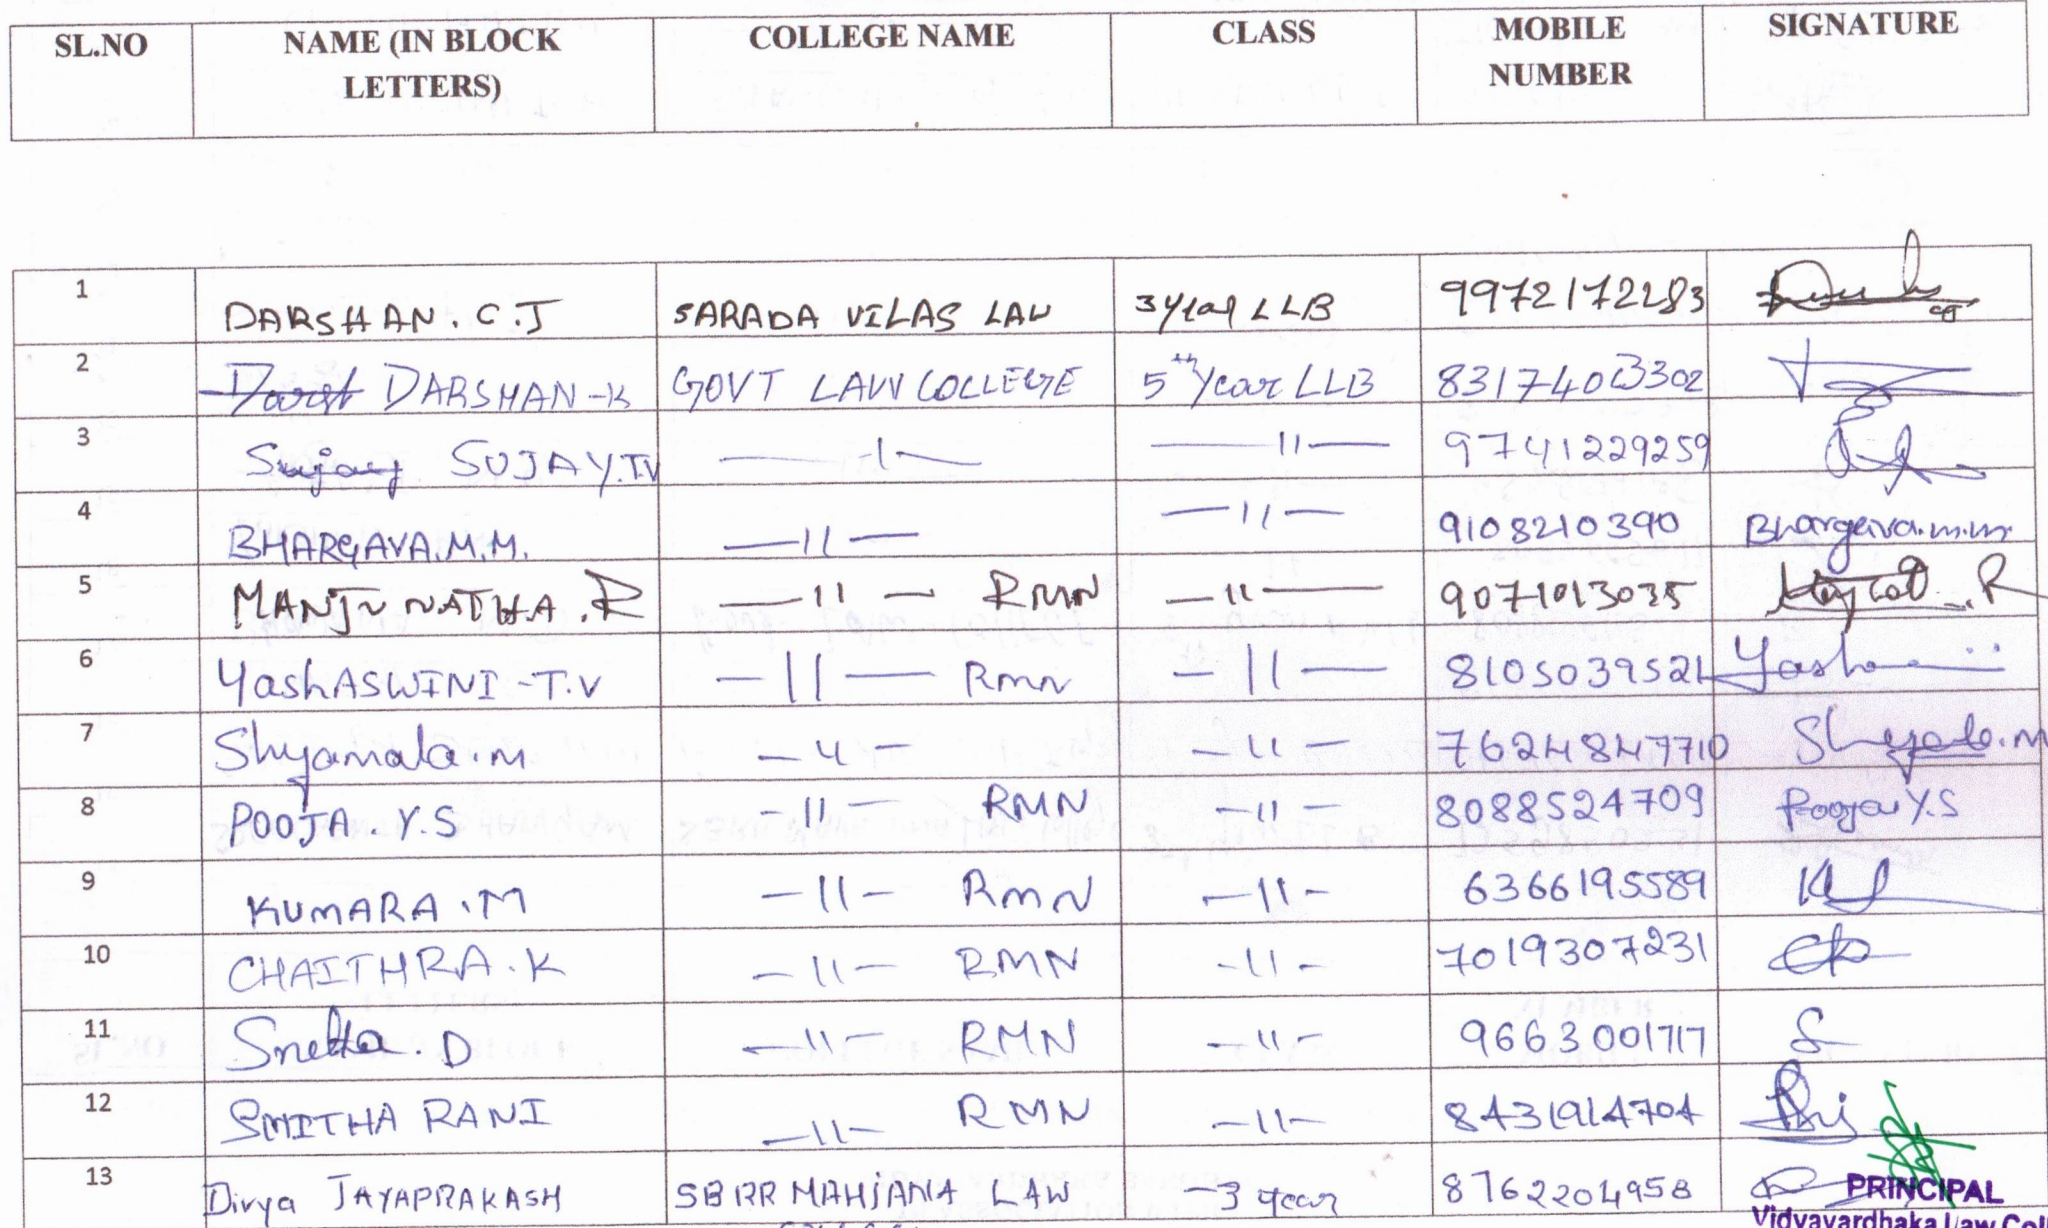 SL.NO NAME (IN BLOCK LETTERS) COLLEGE NAME CLASS MOBILE NUMBER SIGNATURE
1 DARSHAN.C.J SARADA VILAS LAW 3year LLB 9972172283
2 DARSHAN-K GOVT LAW COLLEGE 5th Year LLB 8317403302
3 Sujay SUJAY.T.V —ı— —11— 9741229259
4 BHARGAVA.M.M. —11— —11— 9108210390 Bhargava.m.m.
5 MANJUNATHA.R —11— RMN —11— 9071013035
6 YashASWINI-T.V —11— RMN —11— 8105039521
7 Shyamala.m —11— —11— 7624847710
8 POOJA.Y.S —11— RMN —11— 8088524709 Pooja Y.S
9 KUMARA.M —11— RMN —11— 6366195589
10 CHAITHRA.K —11— RMN —11— 7019307231
11 Sneha.D —11— RMN —11— 9663001717
12 SMITHA RANI —11— RMN —11— 8431914704
13 Divya JAYAPRAKASH SBRR MAHJANA LAW —3 year 8762204958
PRINCIPAL
Vidyavardhaka Law